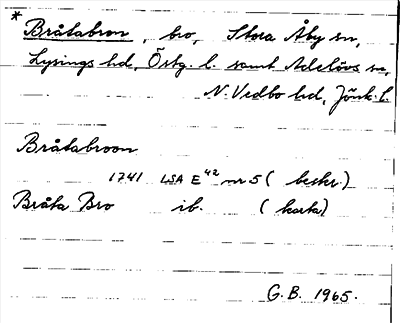 * Bråtabron, bro, Stora Åby sn,
Lysings hd, Östg. l. samt Adelövs sn,
N. Vedbo hd, Jönk. l.
Bråtabroon
1741 LSA E42 nr 5 ( beskr.)
Bråta Bro ib. (karta)
G.B. 1965.